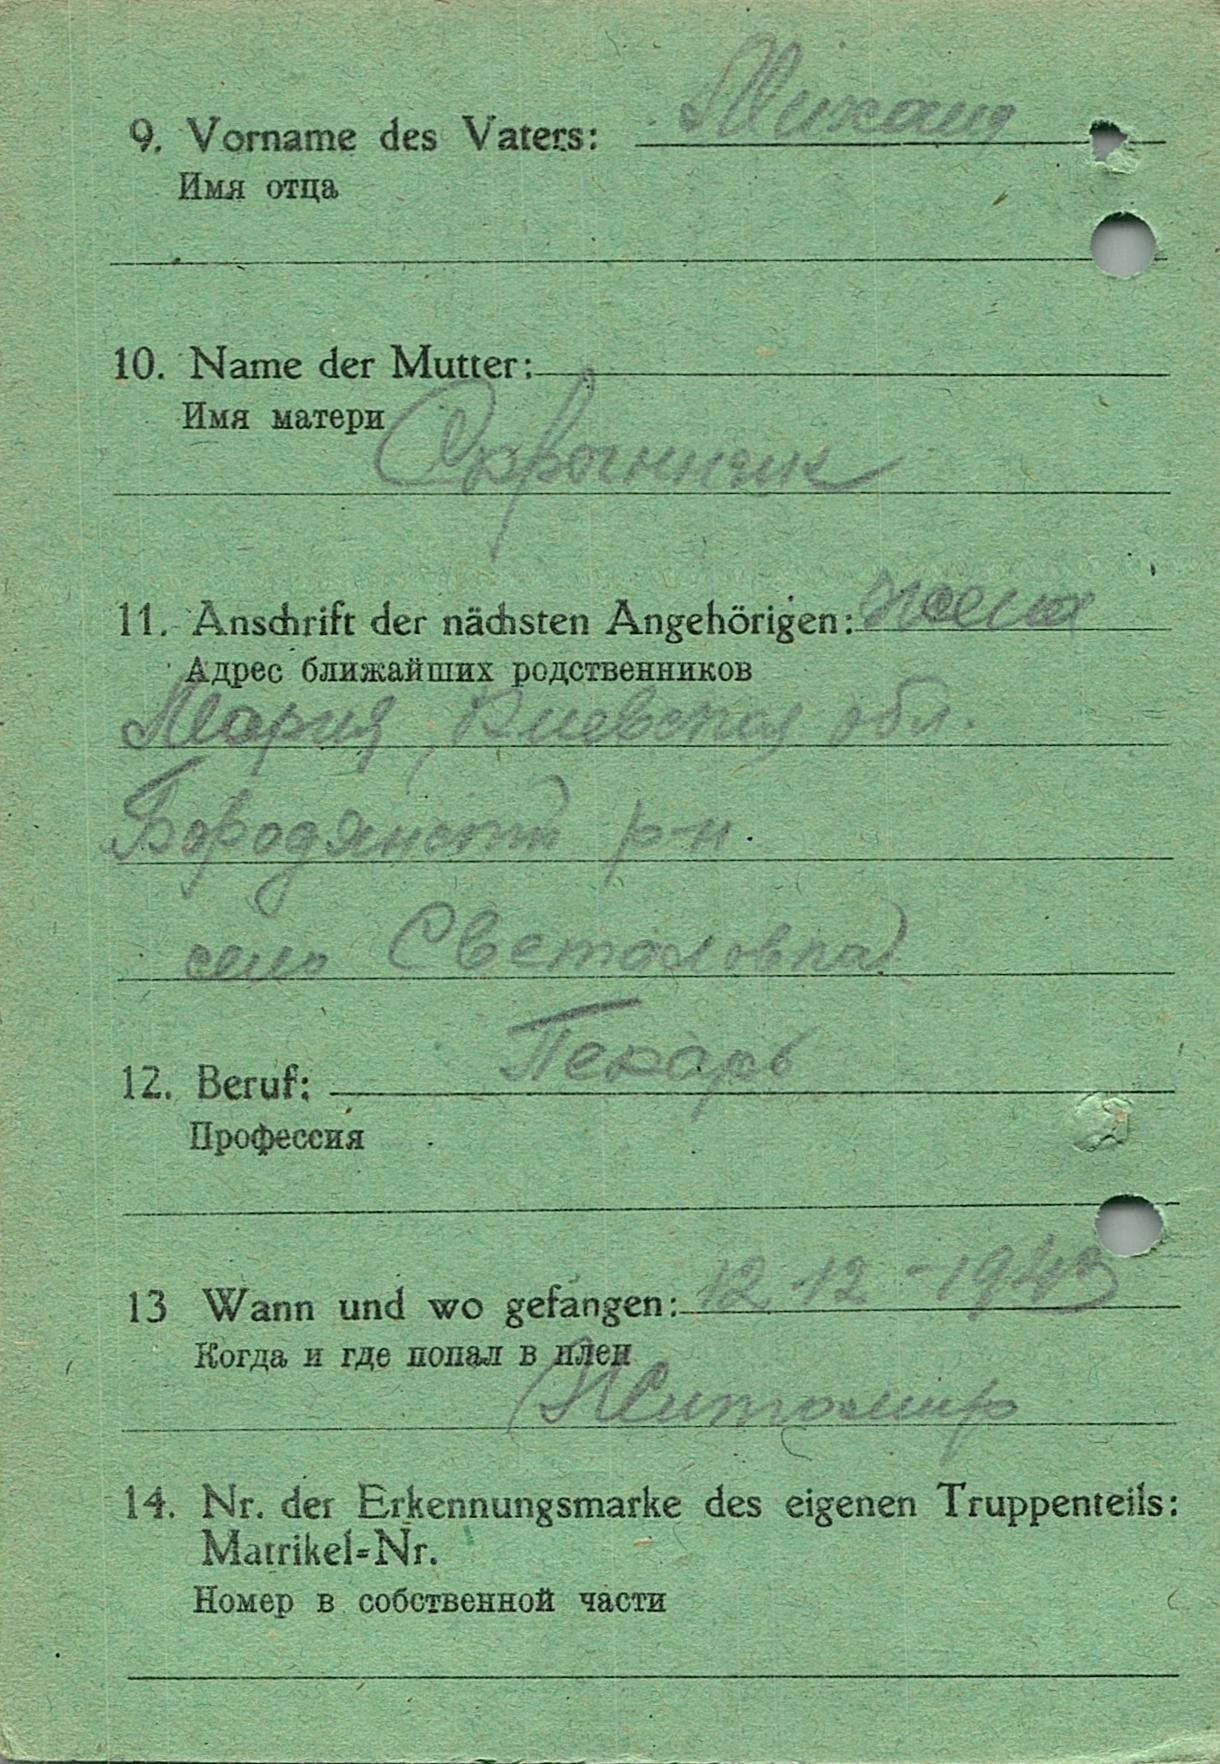 9. Vorname des Vaters: Михаил
Имя отца
10. Name der Mutter:
Имя матери
11. Anschrift der nächsten Angehörigen: жена
Адрес ближайших родственников
Мария, Киевская обл.
Бородянский р-н.
село
12. Beruf: Пекарь
Профессия
13 Wann und wo gefangen: 12-12-1943
Когда и где попал в плен
Житомир
14. Nr. der Erkennungsmarke des eigenen Truppenteils:
Matrikel=Nr.
Номер в собственной части